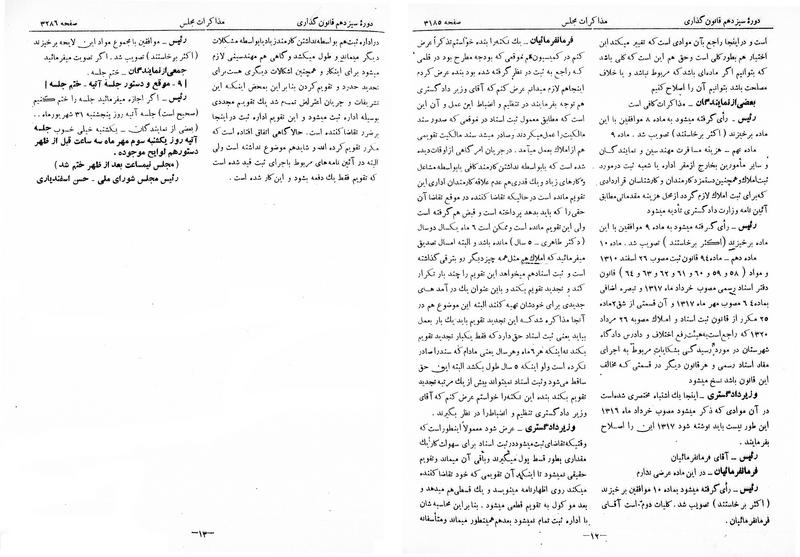 دورهٔ سیزدهم قانون گذاری
مذاکرات مجلس
صفحه ۳۱۸۵
است و در اینجا راجع بآن موادی که تغییر میکند این
اختیار هم بطور کلی است و حق هم این است که کلی باشد
که بتوانیم اگر ماده‌ای باشد که مربوط نباشد و یا خلاف
مصلحت باشد بتوانیم آن را اصلاح کنیم
بعضی از نمایندگان ــ مذاکرات کافی است
رئیس ــ رأی گرفته میشود به ماده ۹ موافقین با این
ماده برخیزند (اکثر برخاستند) تصویب شد . ماده ۹
ماده نهم ــ هزینه مسافرت مهندسین و نمایندگان
و سایر مأمورین بخارج از مقر اداره یا شعبه ثبت در مورد
ثبت املاک و همچنین دستمزد کارمندان و کارشناسان قراردادی
که برای ثبت املاک لازم گردد از محل هزینه مقدماتی مطابق
آئین نامه وزارت دادگستری تأدیه میشود
رئیس ــ رأی گرفته میشود به ماده ۹ موافقین با این
ماده برخیزند (اکثر برخاستند) تصویب شد . ماده ۱۰
ماده دهم ــ ماده ۹۴ قانون ثبت مصوب ۲۶ اسفند ۱۳۱۰
و مواد ( ۵۸ و ۵۹ و ۶۰ و ۶۱ و ۶۲ و ۶۳ و ۶۴ ) قانون
دفتر اسناد رسمی مصوب خرداد ماه ۱۳۱۷ و تبصره اضافی
بماده ۶۴ مصوب مهر ماه ۱۳۱۷ و آن قسمتی از شق ۲ ماده
۲۵ مکرر از قانون ثبت اسناد و املاک مصوبه ۲۶ مرداد
۱۳۲۰ که راجع است به هیئت رفع اختلاف و دادرس دادگاه
شهرستان در مورد رسیدگی بشکایات مربوط به اجرای
مفاد اسناد رسمی و هر قانون دیگر در قسمتی که مخالف
این قانون باشد نسخ میشود
وزیر دادگستری ــ اینجا یک اشتباه مختصری شده است
در آن موادی که ذکر میشود مصوب خرداد ماه ۱۳۱۶
این طور نیست باید نوشته شود ۱۳۱۷ این را اصلاح
بفرمایند .
رئیس ــ آقای فرمانفرمائیان
فرمانفرمائیان ــ در این ماده عرضی ندارم
رئیس ــ رأی گرفته میشود بماده ۱۰ موافقین برخیزند
( اکثر برخاستند ) تصویب شد . کلیات دوم است آقای
فرمانفرمائیان .
فرمانفرمائیان ــ یک نکته را بنده خواستم تذکراً عرض
کنم در کمیسیون هم موقعی که بودجه مطرح بود در قلمی
که راجع به ثبت در نظر گرفته شده بود بنده عرض کردم
اینجا هم لازم میدانم عرض کنم که آقای وزیر دادگستری
هم توجه بفرمایند در تنظیم و انضباط این عمل و آن این
است که مطابق معمول ثبت اسناد در موقعی که صدور سند
مالکیت را عمل میکردند و صادر میشد سند مالکیت تقویمی
هم از املاک بعمل میآمد . در جریان امر گاهی از اوقات دیده
شده است که یا بواسطه نداشتن کارمند کافی یا بواسطه مشاغل
و کارهای زیاد و یک قدری هم عدم علاقه کارمندان اداری این
تقویم مانده است در حالیکه تقاضا کننده در موقع تقاضا آن
حقی را که باید بدهد پرداخته است و قبض هم گرفته است
ولی این تقویم مانده است و ممکن است ۶ ماه یکسال دو سال
( دکتر طاهری ــ ۵ سال ) مانده باشد و البته امسال تصدیق
میفرمائید که املاک هم مثل همه چیز دیگر رو بترقی گذاشته
و ثبت اسناد هم میخواهد این تقویم را چند بار تکرار
کند و تجدید تقویم بکند و باین عنوان یک در آمدهای
جدیدی برای خودشان تهیه کنند البته این موضوع هم در
آنجا مذاکره شد که این تجدید تقویم باید یک بار بعمل
بیاید یعنی ثبت اسناد حق دارد که فقط یکبار تجدید تقویم
بکند نه اینکه هر ۶ ماه و هر سال یعنی مادام که سند را صادر
نکرده است ولو اینکه ۵ سال طول بکشد البته این حق
ساقط می‌شود و ثبت اسناد نمیتواند بیش از یک مرتبه تجدید
تقویم بکند بنده این نکته را خواستم عرض کنم که آقای
وزیر دادگستری تنظیم و انضباط را در نظر بگیرند .
وزیر دادگستری ــ عرض شود معمولاً اینطور است که
وقتیکه تقاضای ثبت میشود در ثبت اسناد برای سهولت کار یک
مقداری بطور قسط پول میگیرند و باقی آن میماند و تقویم
حقیقی نمیشود تا اینکه آن تقویمی که خود تقاضا کننده
میکند روی اظهارنامه مینویسد و یک قسطی هم میدهد و
بعد موکول به تقویم قطعی میشود . بنابراین محاسبه شان
با اداره ثبت تمام نمیشود بعد هم همینطور میماند و متأسفانه
ــ ۱۲ ــ
دورهٔ سیزدهم قانون گذاری
مذاکرات مجلس
صفحه ۳۲۸۶
در اداره ثبت هم بواسطه نداشتن کارمند زیاد یا بواسطه مشکلات
دیگر میماند و طول میکشد و گاهی هم مهندسینی لازم
میشود برای اینکار و همچنین اشکالات دیگری هست برای
تجدید حدود و تقویم کردن بنابراین بمحض اینکه این
تشریفات و جریان اعتراض تمام شد یک تقویم مجددی
بوسیله اداره ثبت میشود و این تقویم اداره ثبت در اینجا
بر ضرر تقاضا کننده است . حالا گاهی اتفاق افتاده است که
مکرر تقویم کرده اند و شاید هم موضوع نداشته است ولی
البته در آئین نامه های مربوط باجرای ثبت قید شده است
که تقویم فقط یک دفعه بشود و این کار شده است .
رئیس ــ موافقین با مجموع مواد این لایحه برخیزند
( اکثر برخاستند ) تصویب شد . اگر تصویب میفرمائید
جمعی از نمایندگان ــ ختم جلسه .
[ ۹ ــ موقع و دستور جلسه آتیه ــ ختم جلسه ]
رئیس ــ اگر اجازه میفرمائید جلسه را ختم کنیم
(صحیح است) جلسه آتیه روز پنجشنبه ۳۱ شهریور ماه . .
(بعضی از نمایندگان ــ یکشنبه) خیلی خوب جلسه
آتیه روز یکشنبه سوم مهر ماه سه ساعت قبل از ظهر
دستور هم لوایح موجوده .
(مجلس نیمساعت بعد از ظهر ختم شد)
رئیس مجلس شورای ملی ــ حسن اسفندیاری
ــ ۱۳ ــ